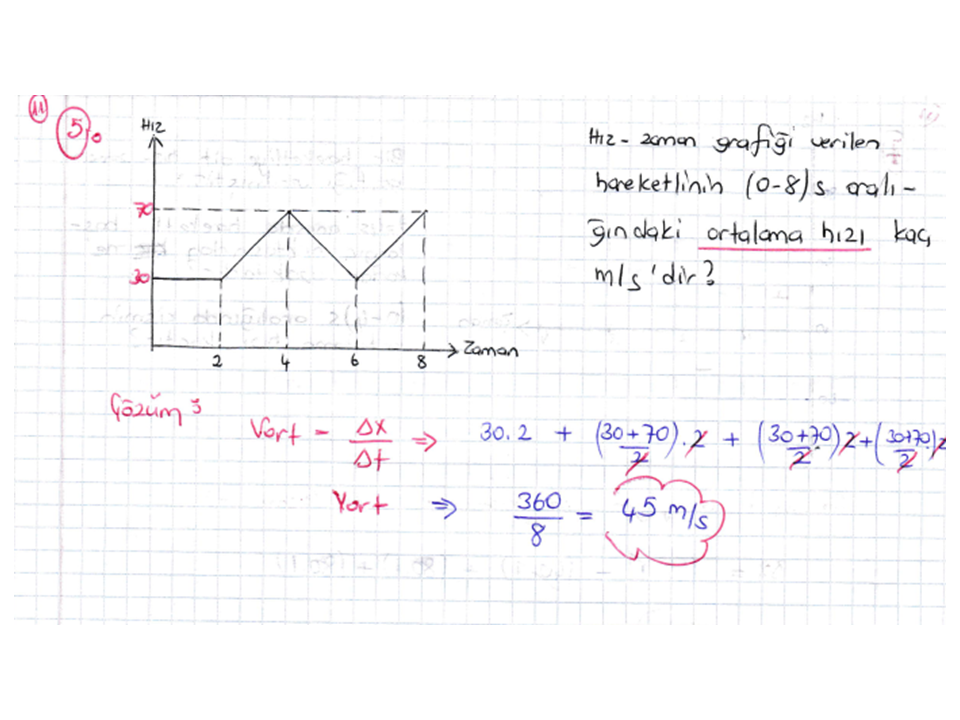 11
5.
Hız
70
30
2 4 6 8
Zaman
Hız - zaman grafiği verilen
hareketlinin (0-8)s aralı-
ğındaki ortalama hızı kaç
m/s 'dir?
Çözüm :
Vort = Δx/Δt ⇒ 30.2 + (30+70)/2 . 2 + (30+70)/2 . 2 + (30+70)/2 . 2
Vort ⇒ 360/8 = 45 m/s